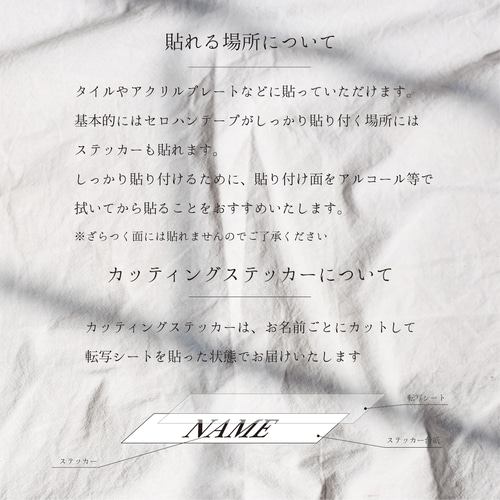 貼れる場所について
タイルやアクリルプレートなどに貼っていただけます。
基本的にはセロハンテープがしっかり貼り付く場所には
ステッカーも貼れます。
しっかり貼り付けるために、貼り付け面をアルコール等で
拭いてから貼ることをおすすめいたします。
※ざらつく面には貼れませんのでご了承ください
カッティングステッカーについて
カッティングステッカーは、お名前ごとにカットして
転写シートを貼った状態でお届けいたします
転写シート
NAME
ステッカー台紙
ステッカー